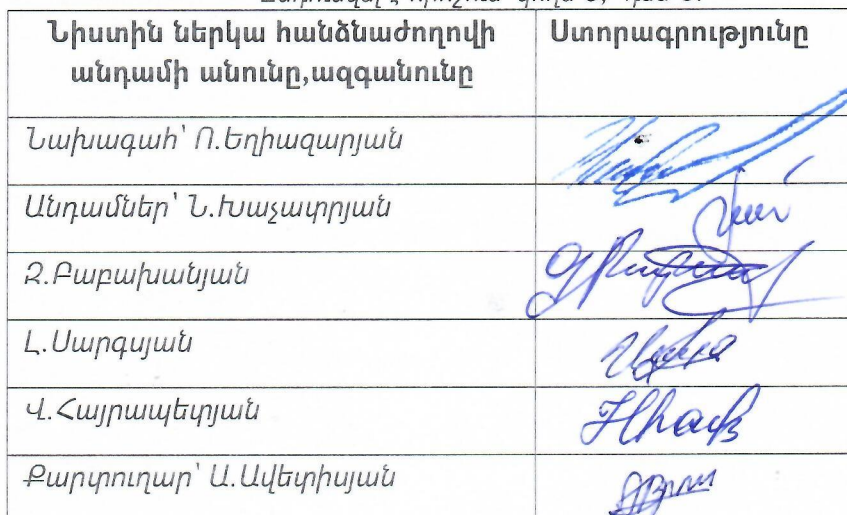 Նիստին ներկա հանձնաժողովի
անդամի անունը,ազգանունը
Ստորագրությունը
Նախագահ՝ Ռ.Եղիազարյան
Անդամներ՝ Ն.Խաչատրյան
Զ.Բաբախանյան
Լ.Սարգսյան
Վ.Հայրապետյան
Քարտուղար՝ Ա.Ավետիսյան